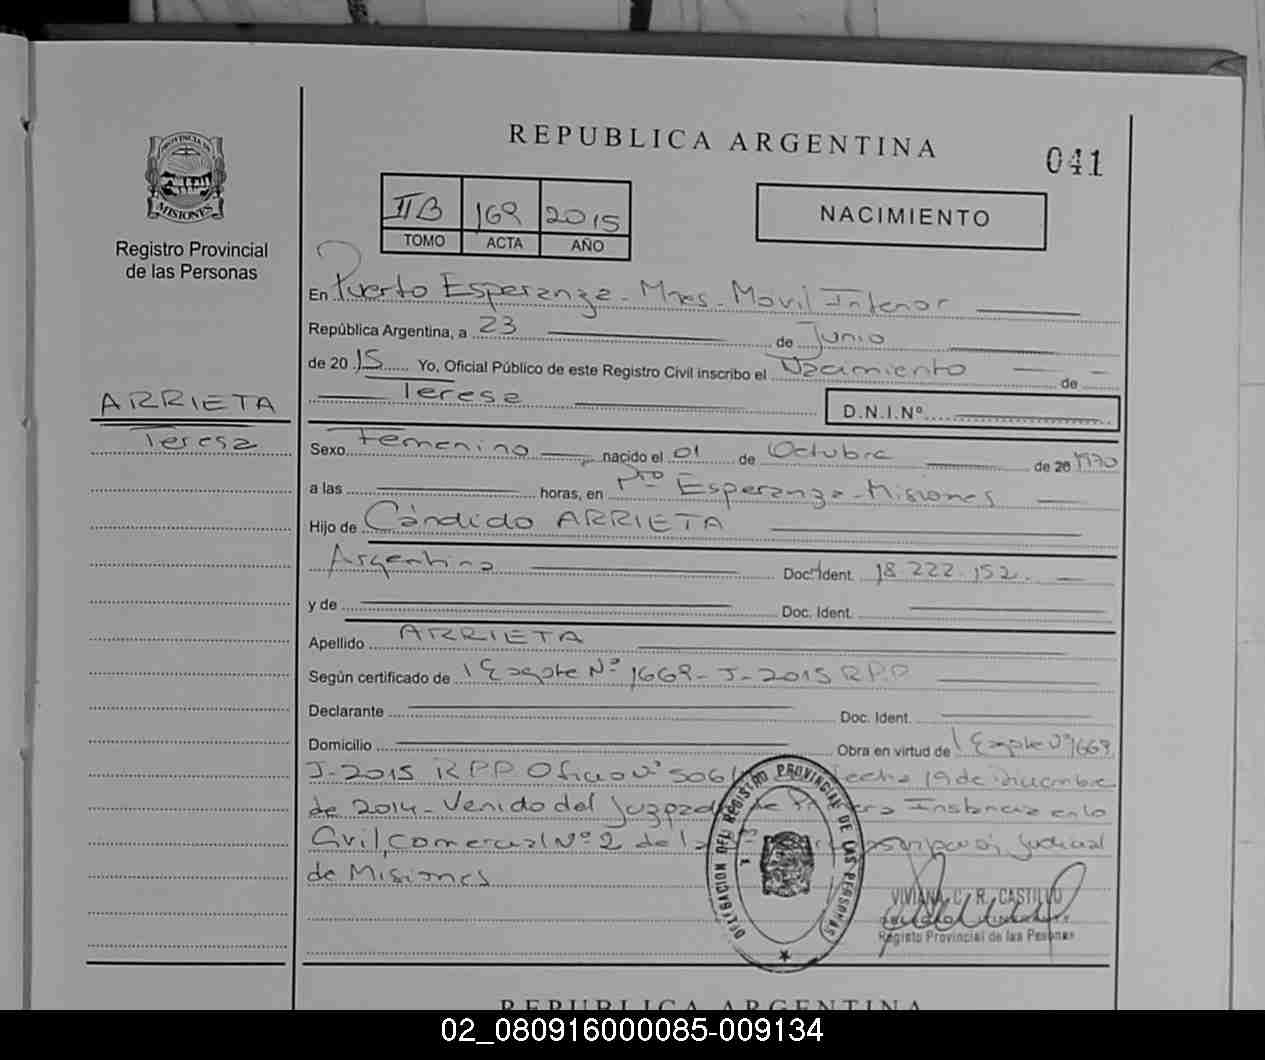 REPUBLICA ARGENTINA
041
PROVINCIA DE
MISIONES
Registro Provincial
de las Personas
II B 169 2015
TOMO ACTA AÑO
NACIMIENTO
En Puerto Esperanza - Mnes - Movil Interior
República Argentina, a 23 de Junio
de 2015 Yo, Oficial Público de este Registro Civil inscribo el Nacimiento de
Teresa
D.N.I.Nº
ARRIETA
Teresa
Sexo Femenino nacido el 01 de Octubre de 20 1970
a las horas, en Pto Esperanza - Misiones
Hijo de Cándido ARRIETA
Argentina Doc. Ident. 18.222.152.
y de Doc. Ident.
Apellido ARRIETA
Según certificado de Expte Nº 1669 - J - 2015 RPP
Declarante Doc. Ident.
Domicilio Obra en virtud de Expte Nº 1669
J-2015 RPP Oficio Nº 506 fecha 19 de Diciembre
de 2014 - Venido del Juzgado de Primera Instancia en lo
Civil, Comercial Nº 2 de la Judicial
de Misiones
DELEGACION DEL REGISTRO PROVINCIAL DE LAS PERSONAS
VIVIANA C. R. CASTILLO
Registro Provincial de las Personas
REPUBLICA ARGENTINA
02_080916000085-009134